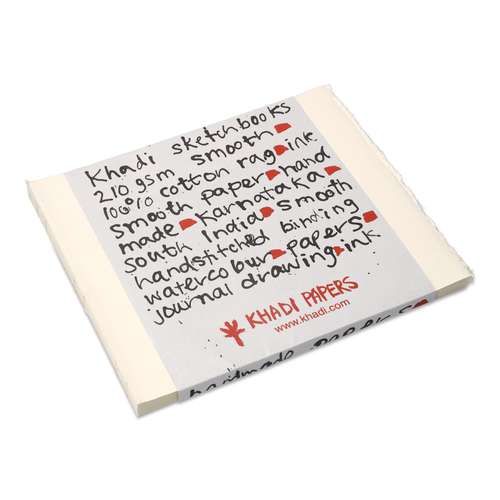 Khadi sketchbooks
210 gsm smooth
100% cotton rag ink
smooth paper hand
made Karnataka
South India smooth
handstitched binding
watercolour papers
journal drawing ink
KHADI PAPERS
www.khadi.com
handmade papers